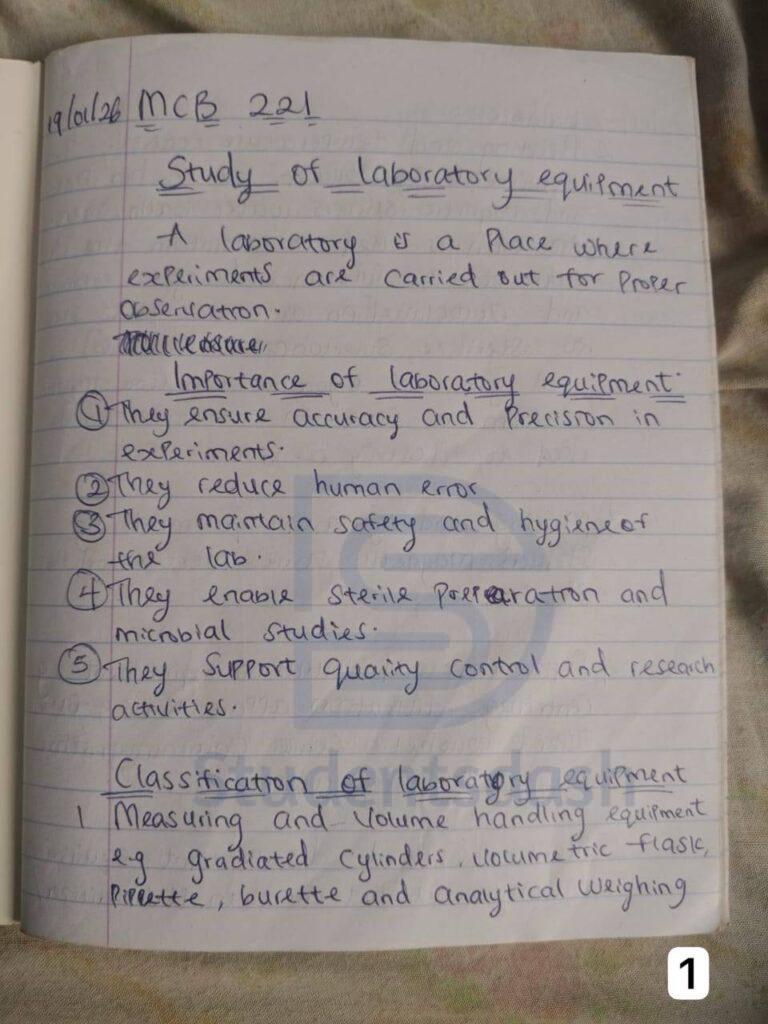 19/01/26 MCB 221
Study of laboratory equipment
A laboratory is a Place where
experiments are carried out for Proper
observation.
Importance of laboratory equipment.
① They ensure accuracy and Precision in
experiments.
② They reduce human error
③ They maintain safety and hygiene of
the lab.
④ They enable sterile Preparation and
microbial studies.
⑤ They Support quality control and research
activities.
Classification of laboratory equipment
1 Measuring and volume handling equipment
e.g gradiated cylinders, volumetric flask,
Pipette, burette and analytical weighing
Studentsdash
1